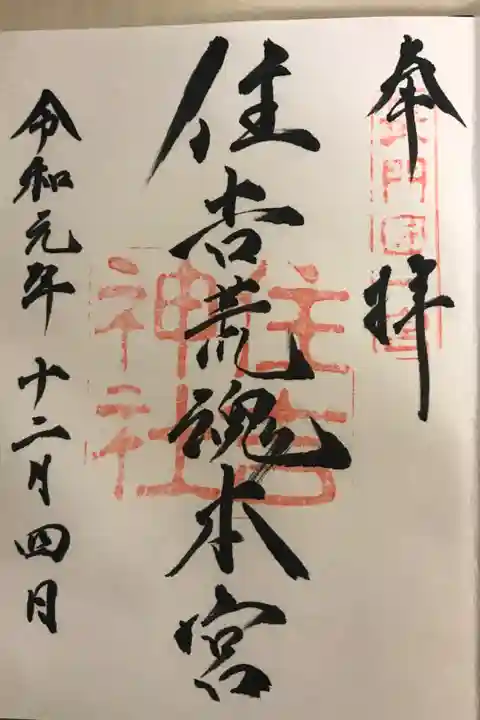 奉拝
長門國一宮
住吉荒魂本宮
住吉神社
令和元年十二月四日